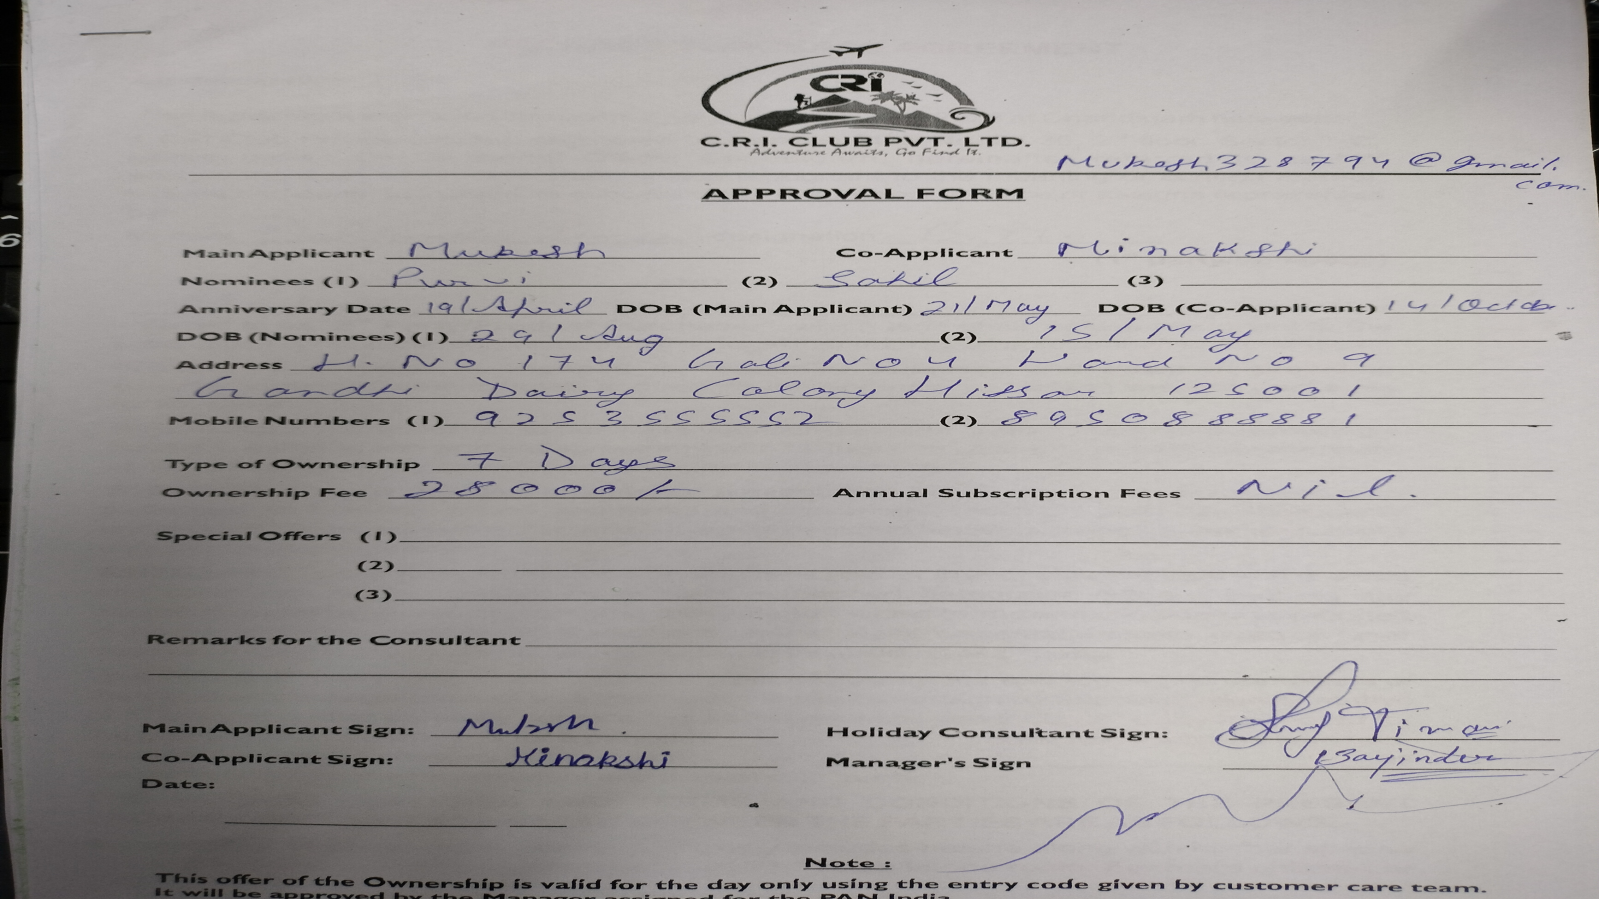 CRI
C.R.I. CLUB PVT. LTD.
Adventure Awaits, Go Find It.
Mukesh328794@gmail.
com.
APPROVAL FORM
Main Applicant Mukesh Co-Applicant Minakshi
Nominees (1) Purvi (2) Sahil (3)
Anniversary Date 19/April DOB (Main Applicant) 21/May DOB (Co-Applicant) 14/Octo
DOB (Nominees) (1) 29/Aug (2) 15/May
Address H. No 174 Gali No 4 Ward No 9
Gandhi Dairy Colony Hissar 125001
Mobile Numbers (1) 9253555552 (2) 8950888881
Type of Ownership 7 Days
Ownership Fee 28000/- Annual Subscription Fees Nil.
Special Offers (1)
(2)
(3)
Remarks for the Consultant
Main Applicant Sign: Mukesh. Holiday Consultant Sign:
Co-Applicant Sign: Minakshi Manager's Sign
Date:
Note :
This offer of the Ownership is valid for the day only using the entry code given by customer care team.
It will be approved by the Manager assigned for the PAN India
6